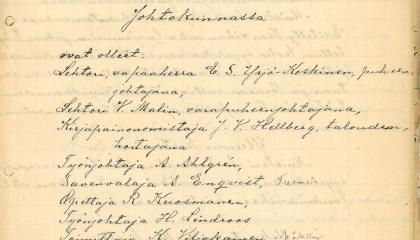 Johtokunnassa
ovat olleet:
Lehtori, vapaaherra E. S. Yrjö-Koskinen, puheen-
johtajana,
Lehtori V. Malin, varapuheenjohtajana,
Kirjapainonomistaja J. V. Hellberg, talouden-
hoitajana
Työnjohtaja A. Ahlgrén,
Savenvalaja A. Enqvist,
Opettaja K. Kuosmanen,
Työnjohtaja H. Lindroos
Toimittaja K.